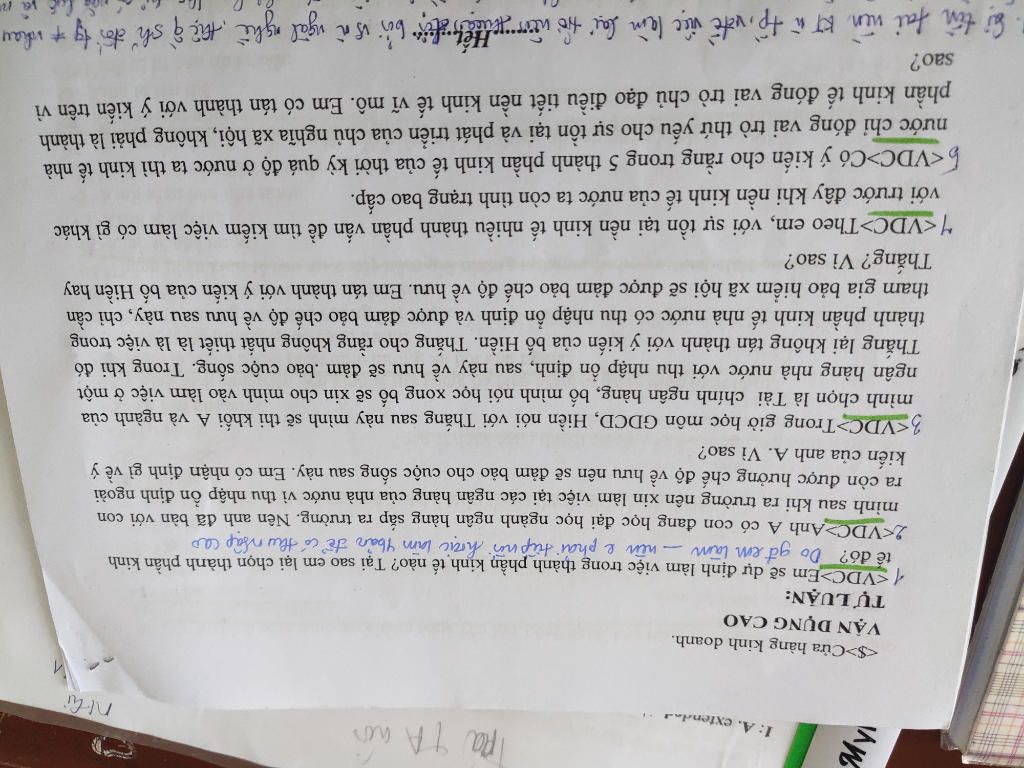 <$>Cửa hàng kinh doanh.
VẬN DỤNG CAO
TỰ LUẬN:
1 <VDC>Em sẽ dự định làm việc trong thành phần kinh tế nào? Tại sao em lại chọn thành phần kinh
tế đó? Do gđ em làm – nên e phải tiếp nối hoặc làm để có thu nhập cao
2 <VDC>Anh A có con đang học đại học ngành ngân hàng sắp ra trường. Nên anh đã bàn với con
mình sau khi ra trường nên xin làm việc tại các ngân hàng của nhà nước vì thu nhập ổn định ngoài
ra còn được hưởng chế độ về hưu nên sẽ đảm bảo cho cuộc sống sau này. Em có nhận định gì về ý
kiến của anh A. Vì sao?
3 <VDC>Trong giờ học môn GDCD, Hiền nói với Thắng sau này mình sẽ thi khối A và ngành của
mình chọn là Tài chính ngân hàng, bố mình nói học xong bố sẽ xin cho mình vào làm việc ở một
ngân hàng nhà nước với thu nhập ổn định, sau này về hưu sẽ đảm .bảo cuộc sống. Trong khi đó
Thắng lại không tán thành với ý kiến của bố Hiền. Thắng cho rằng không nhất thiết là là việc trong
thành phần kinh tế nhà nước có thu nhập ổn định và được đảm bảo chế độ về hưu sau này, chỉ cần
tham gia bảo hiểm xã hội sẽ được đảm bảo chế độ về hưu. Em tán thành với ý kiến của bố Hiền hay
Thắng? Vì sao?
4 <VDC>Theo em, với sự tồn tại nền kinh tế nhiều thành phần vấn đề tìm kiếm việc làm có gì khác
với trước đây khi nền kinh tế của nước ta còn tình trạng bao cấp.
5 <VDC>Có ý kiến cho rằng trong 5 thành phần kinh tế của thời kỳ quá độ ở nước ta thì kinh tế nhà
nước chỉ đóng vai trò thứ yếu cho sự tồn tại và phát triển của chủ nghĩa xã hội, không phải là thành
phần kinh tế đóng vai trò chủ đạo điều tiết nền kinh tế vĩ mô. Em có tán thành với ý kiến trên vì
sao?
........Hết........
tồn tại nền KT n tp, vđề việc làm lại trở nên bởi vì ngành nghề,
I: A. extended
My